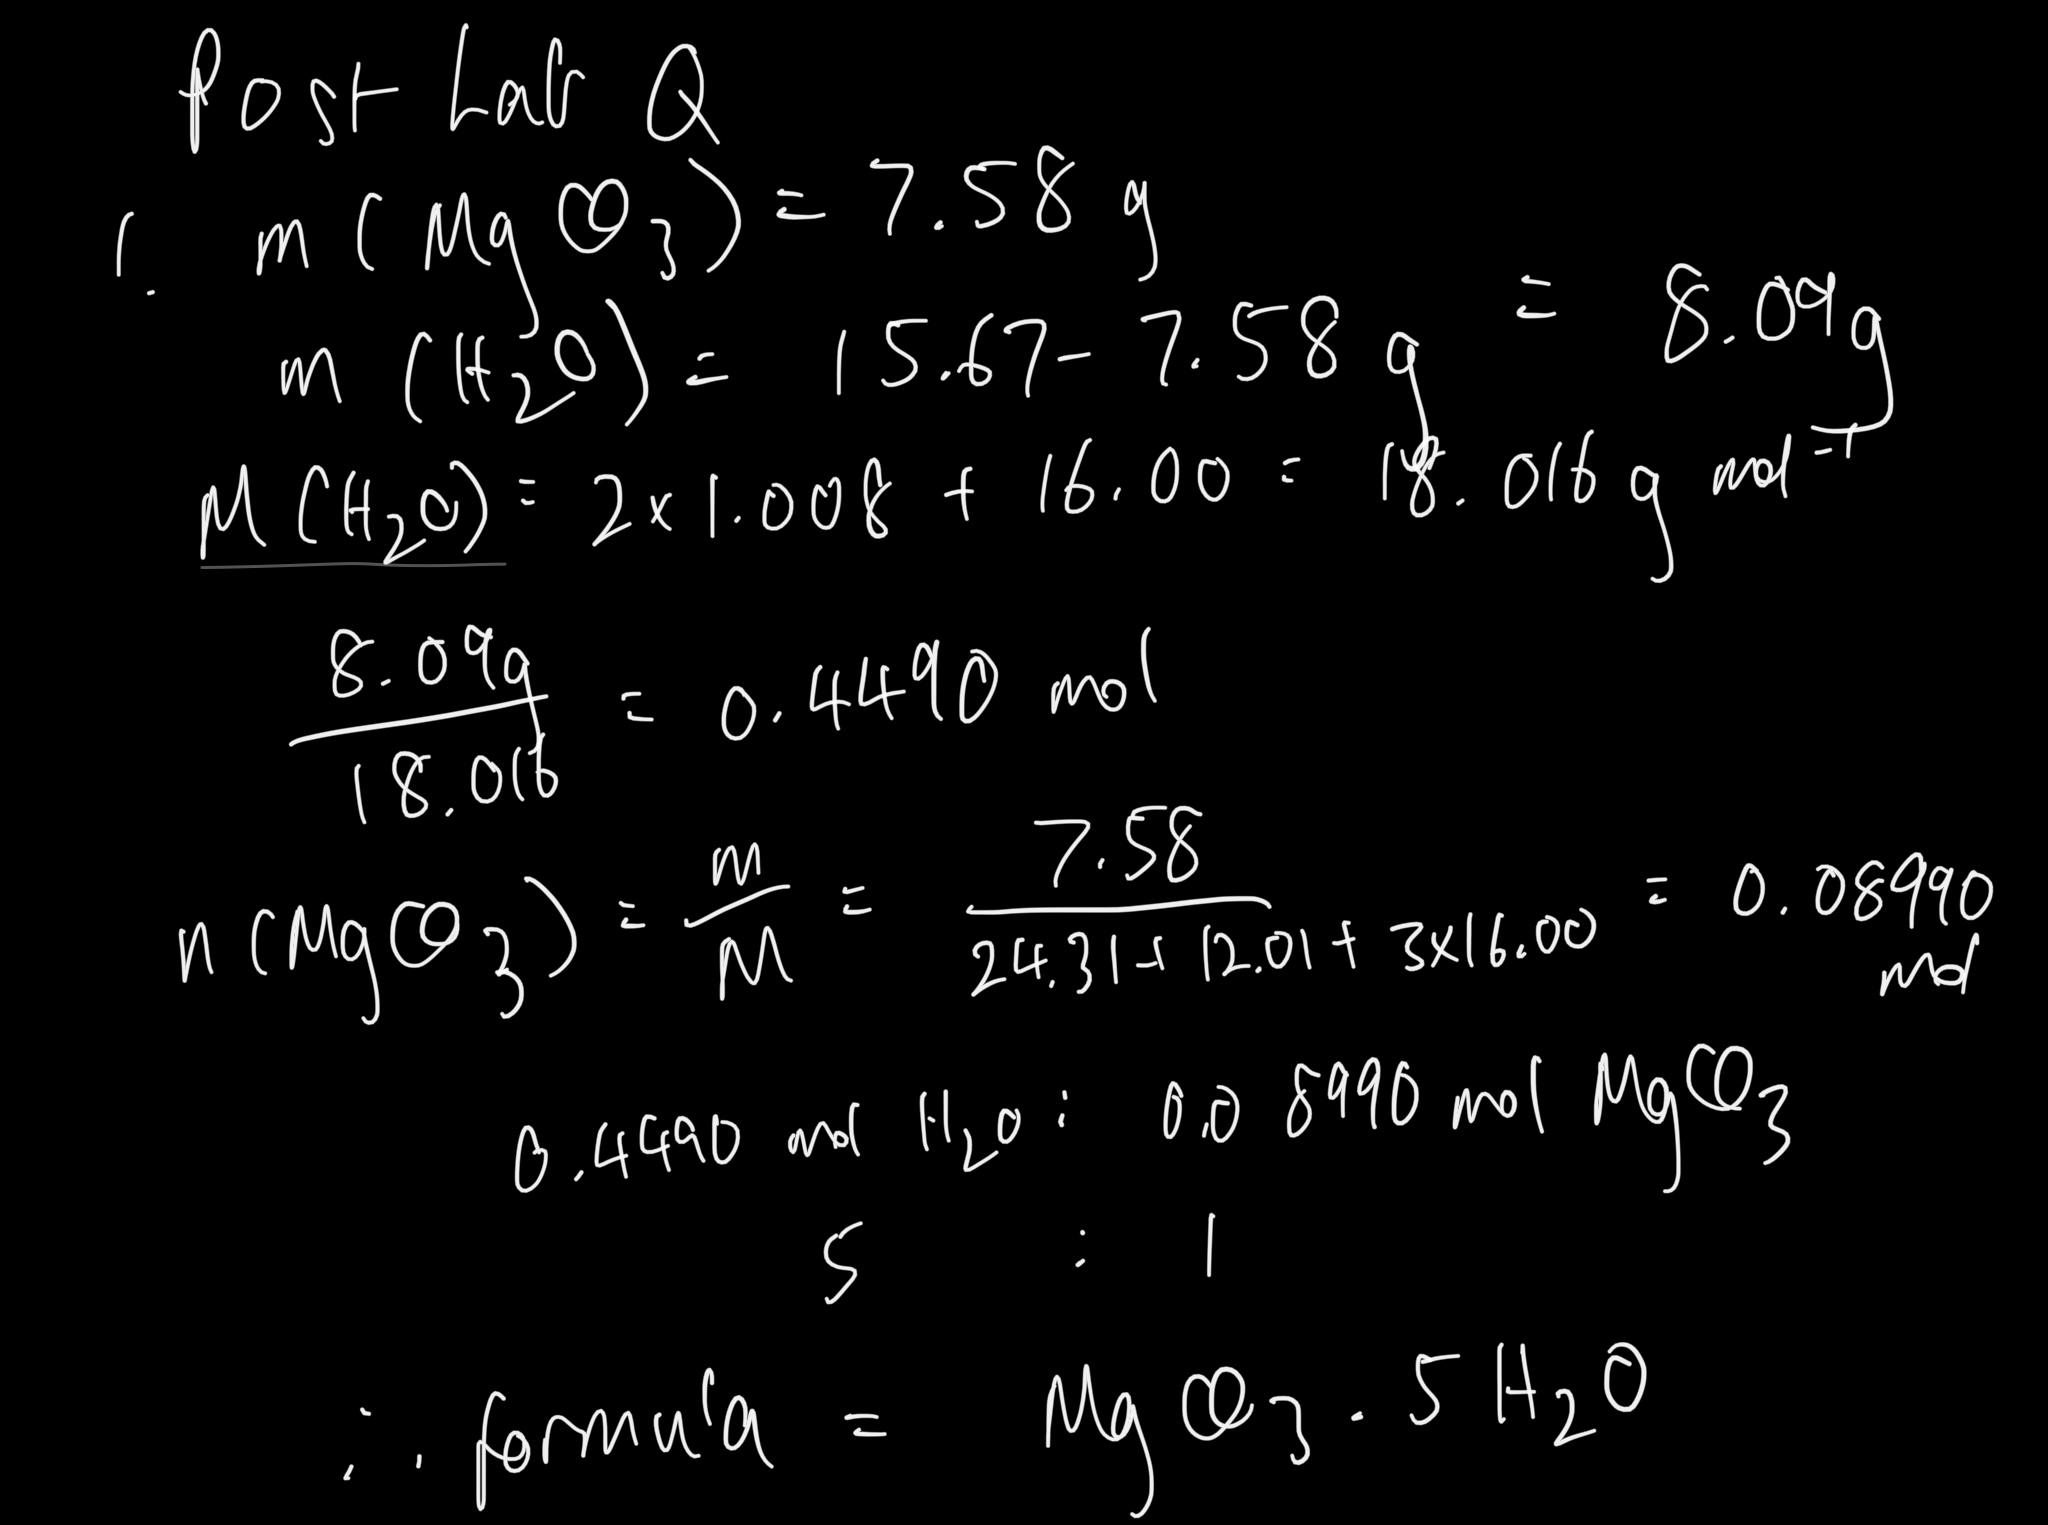 Post Lab Q
1. m(MgCO₃) = 7.58 g
m(H₂O) = 15.67 - 7.58 g = 8.09g
M(H₂O) = 2x1.008 + 16.00 = 18.016 g mol⁻¹
8.09g / 18.016 = 0.4490 mol
n(MgCO₃) = m / M = 7.58 / 24.31 + 12.01 + 3x16.00 = 0.08990 mol
0.4490 mol H₂O : 0.08990 mol MgCO₃
5 : 1
∴ formula = MgCO₃ . 5H₂O